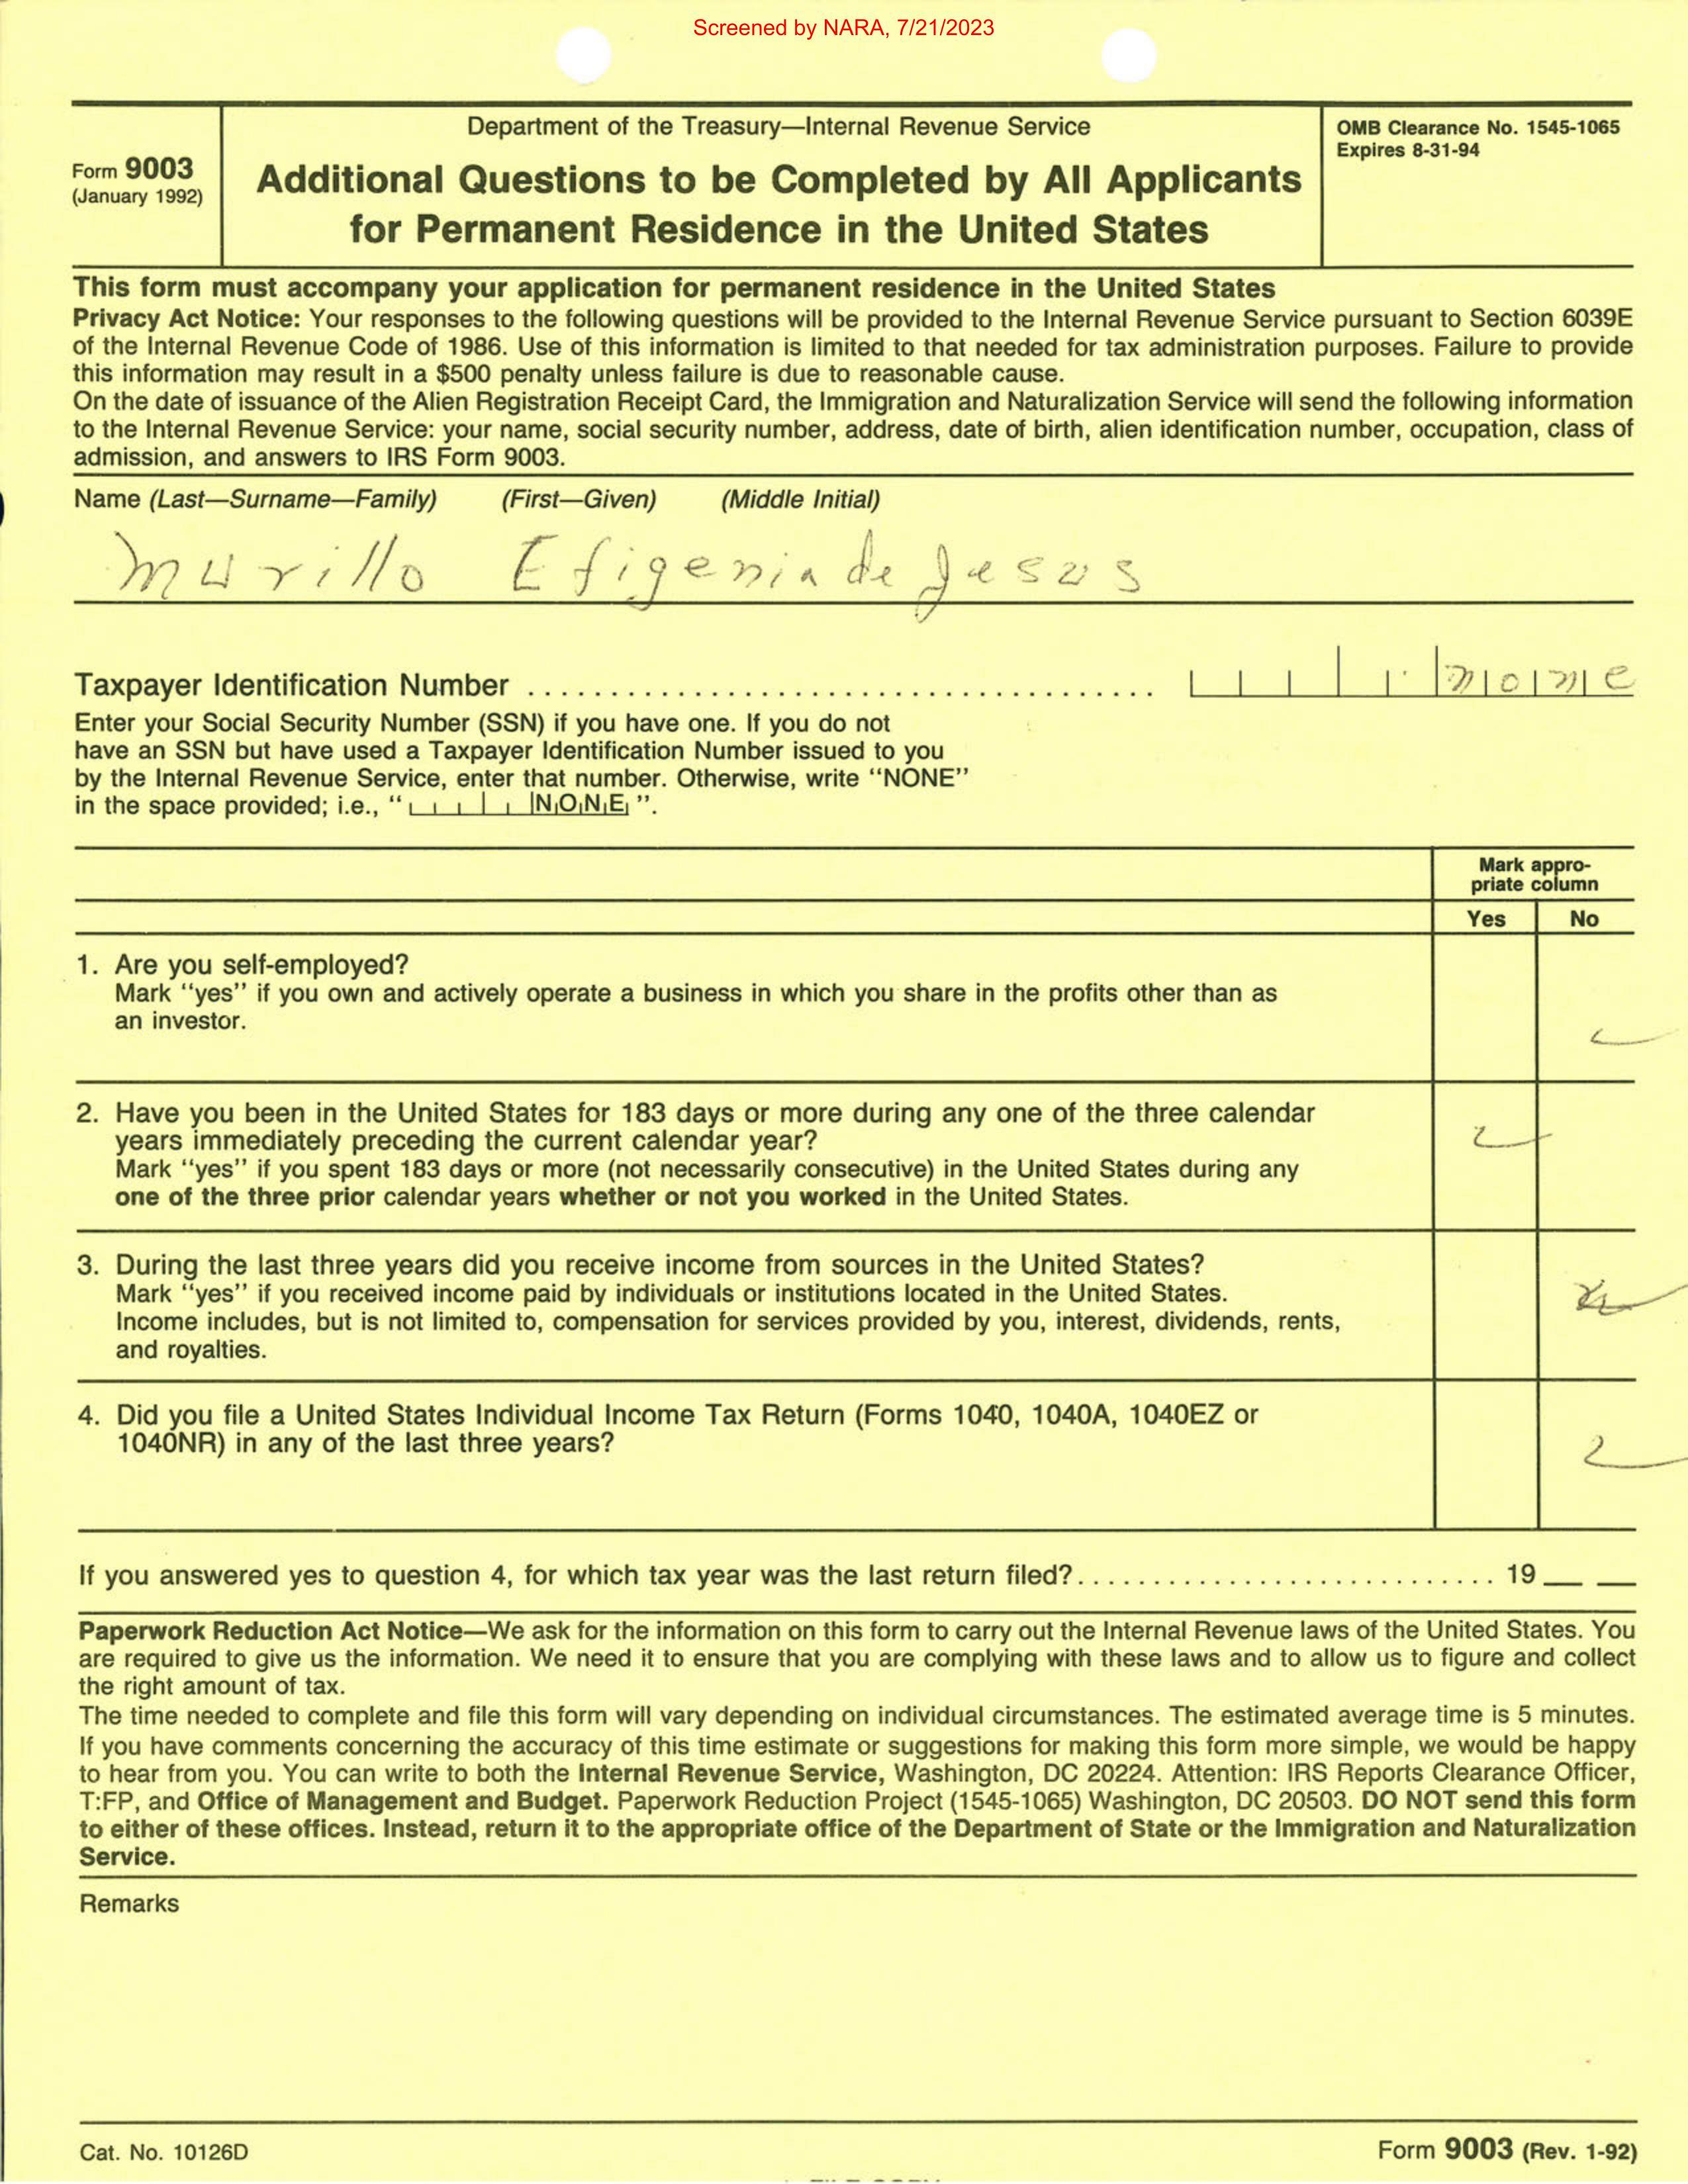 Screened by NARA, 7/21/2023
Form 9003
(January 1992)
Department of the Treasury—Internal Revenue Service
Additional Questions to be Completed by All Applicants
for Permanent Residence in the United States
OMB Clearance No. 1545-1065
Expires 8-31-94
This form must accompany your application for permanent residence in the United States
Privacy Act Notice: Your responses to the following questions will be provided to the Internal Revenue Service pursuant to Section 6039E
of the Internal Revenue Code of 1986. Use of this information is limited to that needed for tax administration purposes. Failure to provide
this information may result in a $500 penalty unless failure is due to reasonable cause.
On the date of issuance of the Alien Registration Receipt Card, the Immigration and Naturalization Service will send the following information
to the Internal Revenue Service: your name, social security number, address, date of birth, alien identification number, occupation, class of
admission, and answers to IRS Form 9003.
Name (Last—Surname—Family) (First—Given) (Middle Initial)
Murillo Efigenia de Jesus
Taxpayer Identification Number ........................................ none
Enter your Social Security Number (SSN) if you have one. If you do not
have an SSN but have used a Taxpayer Identification Number issued to you
by the Internal Revenue Service, enter that number. Otherwise, write “NONE”
in the space provided; i.e., “ NONE ”.
Mark appro-
priate column
Yes No
1. Are you self-employed?
Mark “yes” if you own and actively operate a business in which you share in the profits other than as
an investor.
2. Have you been in the United States for 183 days or more during any one of the three calendar
years immediately preceding the current calendar year?
Mark “yes” if you spent 183 days or more (not necessarily consecutive) in the United States during any
one of the three prior calendar years whether or not you worked in the United States.
3. During the last three years did you receive income from sources in the United States?
Mark “yes” if you received income paid by individuals or institutions located in the United States.
Income includes, but is not limited to, compensation for services provided by you, interest, dividends, rents,
and royalties.
4. Did you file a United States Individual Income Tax Return (Forms 1040, 1040A, 1040EZ or
1040NR) in any of the last three years?
If you answered yes to question 4, for which tax year was the last return filed?............................ 19__ __
Paperwork Reduction Act Notice—We ask for the information on this form to carry out the Internal Revenue laws of the United States. You
are required to give us the information. We need it to ensure that you are complying with these laws and to allow us to figure and collect
the right amount of tax.
The time needed to complete and file this form will vary depending on individual circumstances. The estimated average time is 5 minutes.
If you have comments concerning the accuracy of this time estimate or suggestions for making this form more simple, we would be happy
to hear from you. You can write to both the Internal Revenue Service, Washington, DC 20224. Attention: IRS Reports Clearance Officer,
T:FP, and Office of Management and Budget. Paperwork Reduction Project (1545-1065) Washington, DC 20503. DO NOT send this form
to either of these offices. Instead, return it to the appropriate office of the Department of State or the Immigration and Naturalization
Service.
Remarks
Cat. No. 10126D
Form 9003 (Rev. 1-92)